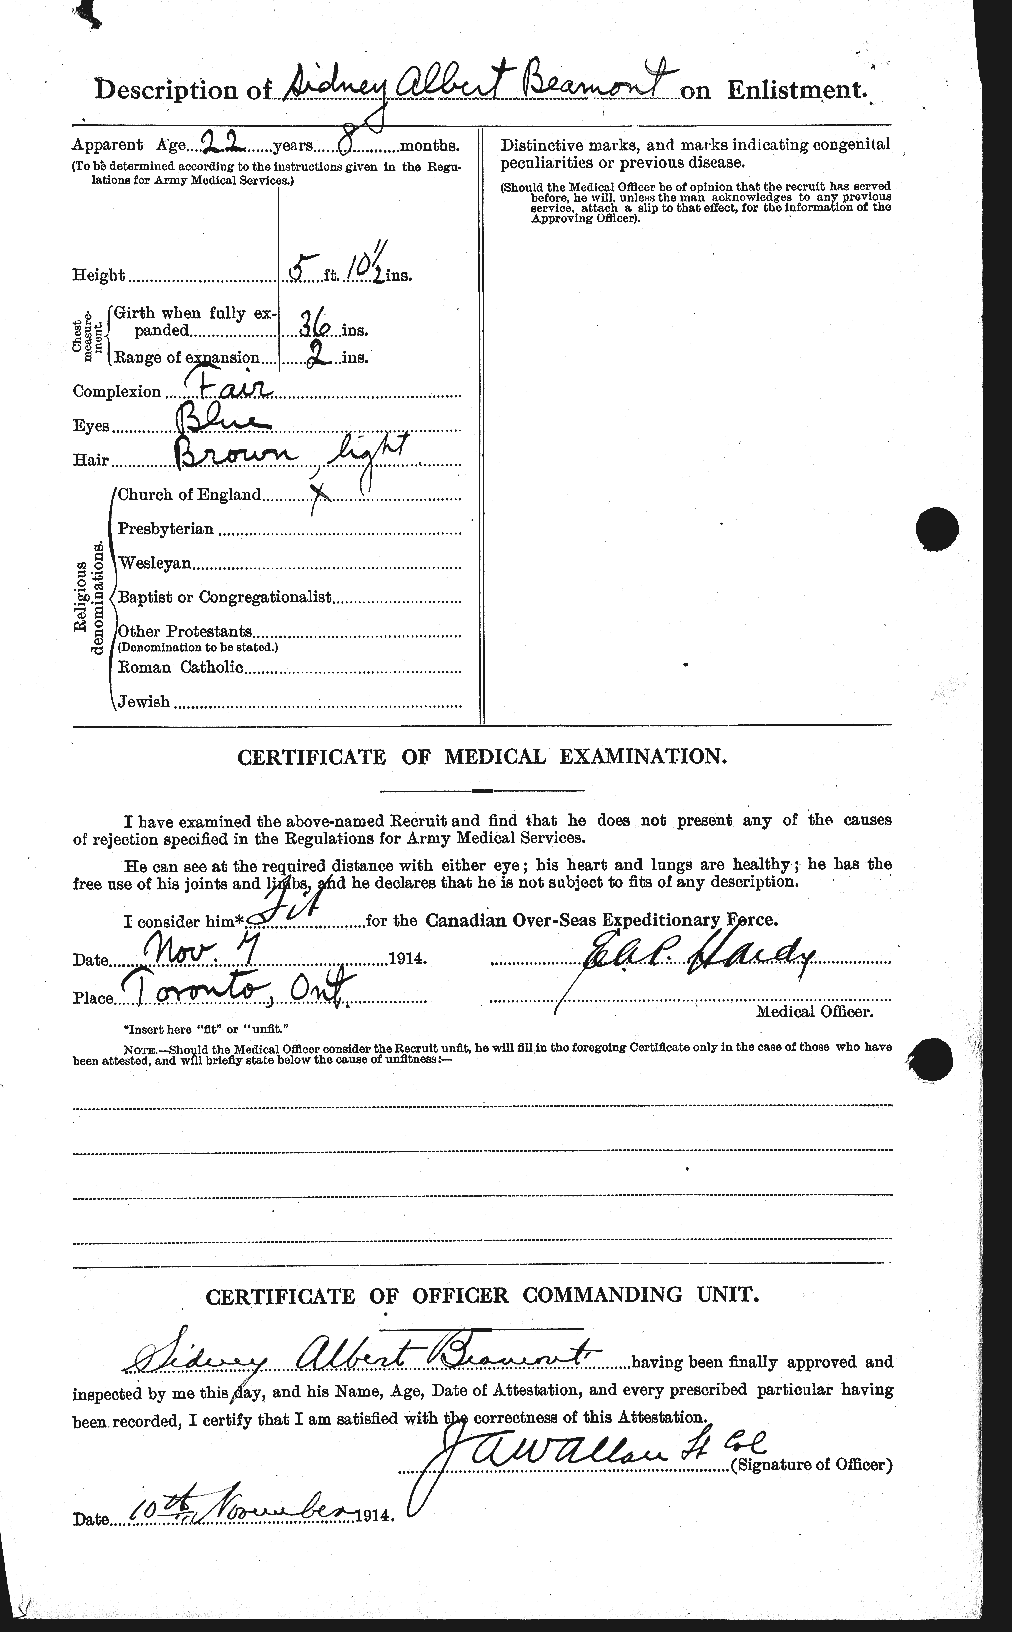 Description of Sidney Albert Beamont on Enlistment.
Apparent Age 22 years 8 months.
(To be determined according to the instructions given in the Regu-
lations for Army Medical Services.)
Height 5 ft. 10½ ins.
Chest measure-ment.
Girth when fully ex-
panded 36 ins.
Range of expansion 2 ins.
Complexion Fair
Eyes Blue
Hair Brown, light
Religious denominations.
Church of England X
Presbyterian
Wesleyan
Baptist or Congregationalist
Other Protestants
(Denomination to be stated.)
Roman Catholic
Jewish
Distinctive marks, and marks indicating congenital
peculiarities or previous disease.
(Should the Medical Officer be of opinion that the recruit has served
before, he will, unless the man acknowledges to any previous
service, attach a slip to that effect, for the information of the
Approving Officer).
CERTIFICATE OF MEDICAL EXAMINATION.
I have examined the above-named Recruit and find that he does not present any of the causes
of rejection specified in the Regulations for Army Medical Services.
He can see at the required distance with either eye; his heart and lungs are healthy; he has the
free use of his joints and limbs, and he declares that he is not subject to fits of any description.
I consider him* Fit for the Canadian Over-Seas Expeditionary Force.
Date Nov. 7 1914. E.A.P. Hardy
Place Toronto, Ont.
Medical Officer.
*Insert here "fit" or "unfit."
NOTE.—Should the Medical Officer consider the Recruit unfit, he will fill in the foregoing Certificate only in the case of those who have
been attested, and will briefly state below the cause of unfitness:—
CERTIFICATE OF OFFICER COMMANDING UNIT.
Sidney Albert Beamont having been finally approved and
inspected by me this day, and his Name, Age, Date of Attestation, and every prescribed particular having
been recorded, I certify that I am satisfied with the correctness of this Attestation.
Lt Col (Signature of Officer)
Date 10th November 1914.